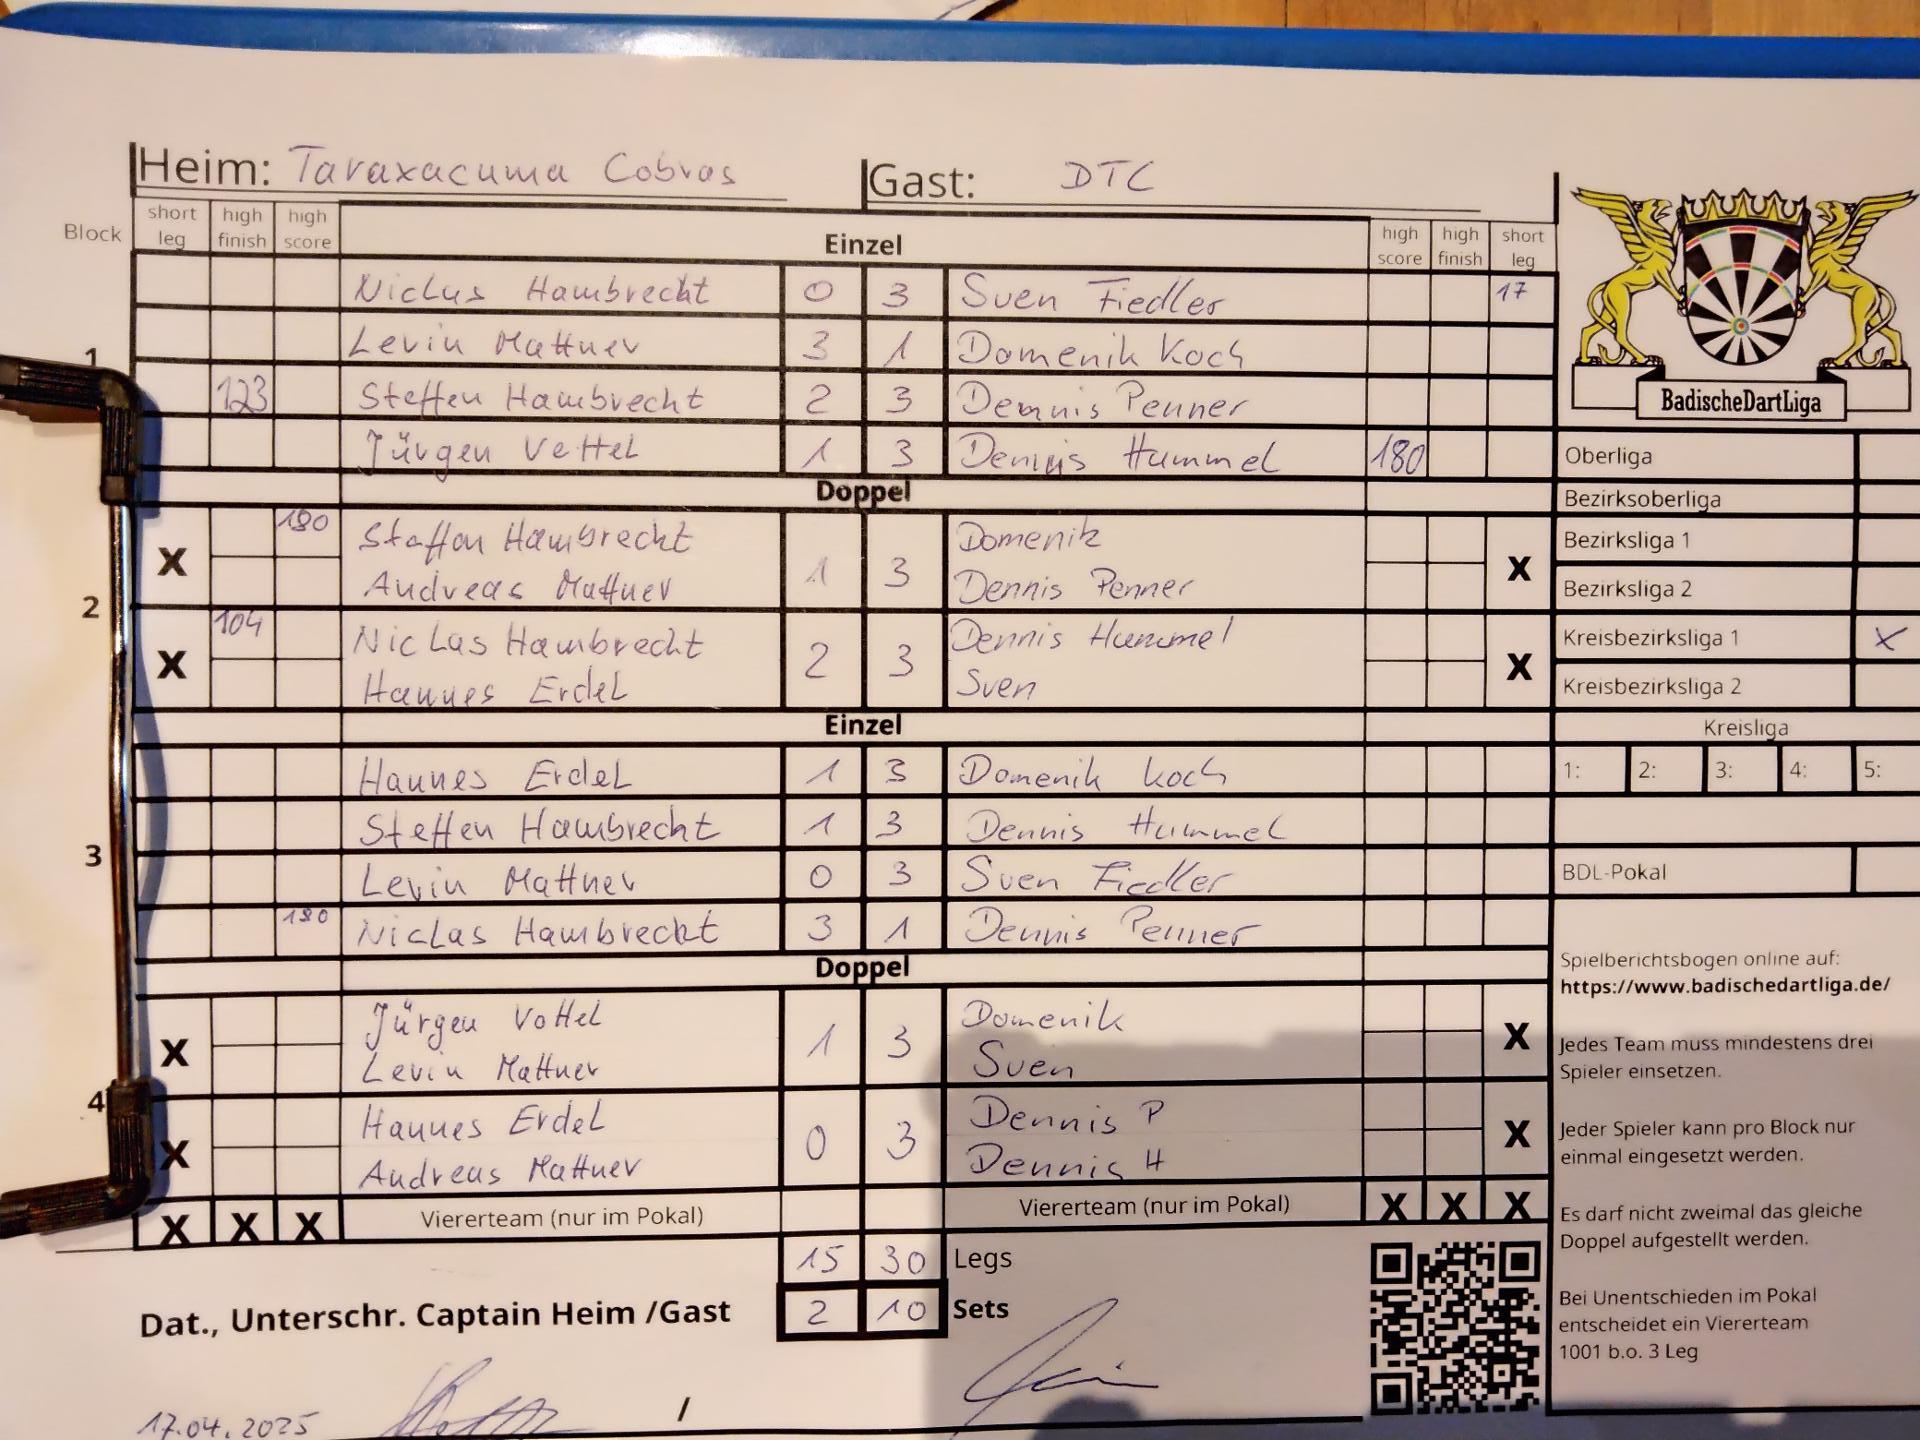 Heim: Taraxacuma Cobras Gast: DTC
Block short leg high finish high score Einzel high score high finish short leg
Niclas Hambrecht 0 3 Sven Fiedler 17
1 Levin Mattner 3 1 Domenik Koch
123 Steffen Hambrecht 2 3 Dennis Penner
Jürgen Vettel 1 3 Dennis Hummel 180
Doppel
180 Steffen Hambrecht 1 3 Domenik
X Andreas Mattner Dennis Penner X
2
104 Niclas Hambrecht 2 3 Dennis Hummel
X Hannes Erdel Sven X
Einzel
Hannes Erdel 1 3 Domenik Koch
Steffen Hambrecht 1 3 Dennis Hummel
3 Levin Mattner 0 3 Sven Fiedler
180 Niclas Hambrecht 3 1 Dennis Penner
Doppel
Jürgen Vettel 1 3 Domenik
X Levin Mattner Sven X
4
Hannes Erdel 0 3 Dennis P
X Andreas Mattner Dennis H X
X X X Viererteam (nur im Pokal) Viererteam (nur im Pokal) X X X
15 30 Legs
Dat., Unterschr. Captain Heim /Gast 2 10 Sets
17.04.2025 /
BadischeDartLiga
Oberliga
Bezirksoberliga
Bezirksliga 1
Bezirksliga 2
Kreisbezirksliga 1 X
Kreisbezirksliga 2
Kreisliga
1: 2: 3: 4: 5:
BDL-Pokal
Spielberichtsbogen online auf:
https://www.badischedartliga.de/
Jedes Team muss mindestens drei
Spieler einsetzen.
Jeder Spieler kann pro Block nur
einmal eingesetzt werden.
Es darf nicht zweimal das gleiche
Doppel aufgestellt werden.
Bei Unentschieden im Pokal
entscheidet ein Viererteam
1001 b.o. 3 Leg